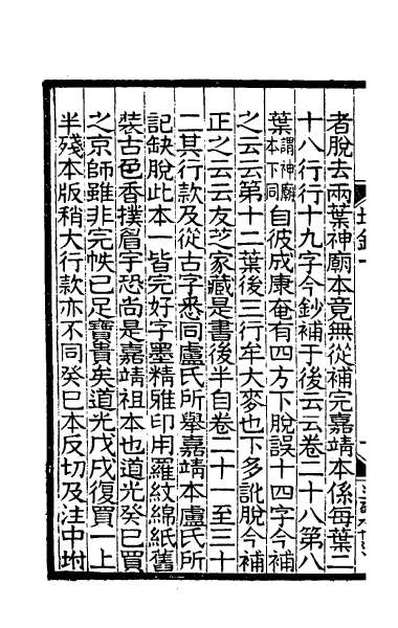 者脫去兩葉神廟本竟無從補完嘉靖本係每葉二
十八行行十九字今鈔補于後云云卷二十八第八
葉謂神廟本下同自彼成康奄有四方下脫誤十四字今補
之云云第十二葉後三行牟大麥也下多訛脫今補
正之云云友芝家藏是書後半自卷二十一至三十
二其行款及從古字悉同盧氏所舉嘉靖本盧氏所
記缺脫此本一一皆完好字墨精雅印用羅紋綿紙舊
裝古色香撲眉宇恐尚是嘉靖祖本也道光癸巳買
之京師雖非完帙已足寶貴矣道光戊戌復買一上
半殘本版稍大行款亦不同癸巳本反切及注中坿